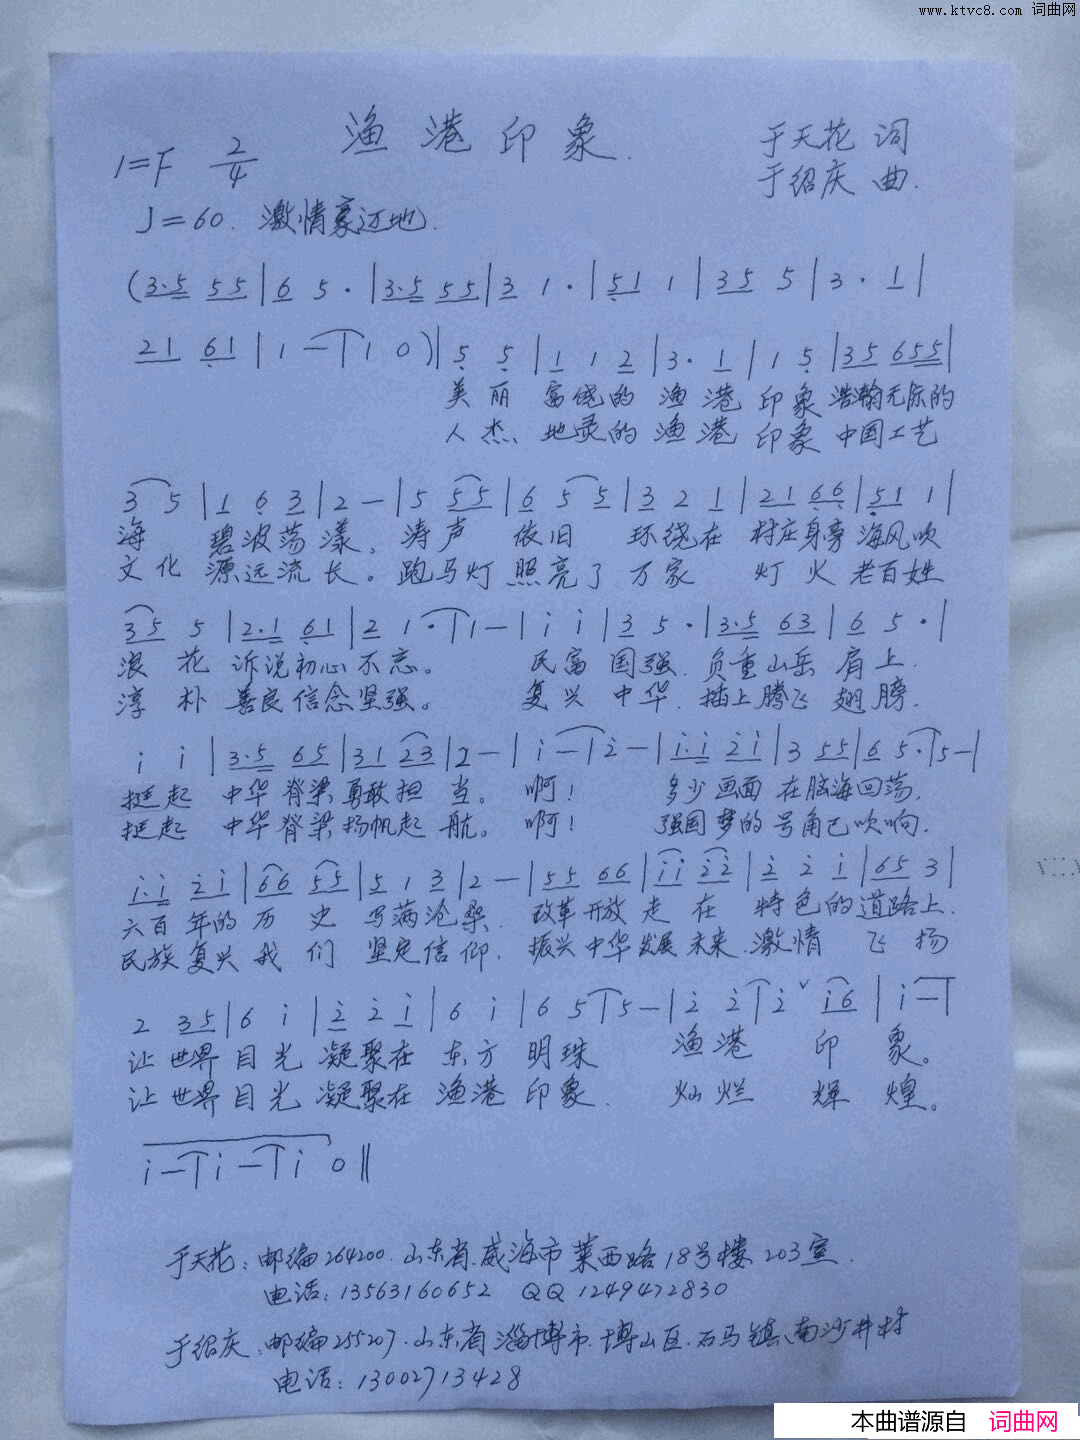 www.ktvc8.com 词曲网
渔港印象.
于天花 词
1=F 2/4
于绍庆 曲.
♩=60. 激情豪迈地.
(3·5 55|6 5·|3·5 55|3 1·|51 1|35 5|3· 1|
21 61|1-|1 0)|5 5|1 1 2|3· 1|1 5|35 655|
美丽 富饶的 渔港 印象 浩瀚无际的
人杰、地灵的 渔港 印象 中国工艺
3 5|1 6 3|2-|5 55|6 5 5|3 2 1|21 66|51 1|
海 碧波荡漾。涛声 依旧 环绕在 村庄身旁 海风吹
文化 源远流长。跑马灯 照亮了 万家 灯火 老百姓
35 5|2·1 61|2 1·|1-|i i|3 5·|3·5 63|6 5·|
浪花 诉说初心不忘。 民富 国强. 负重山岳 肩上.
淳朴 善良信念坚强。 复兴 中华. 插上腾飞 翅膀.
i i|3·5 65|31 23|2-|i-|2-|i·i 2i|3 55|6 5·|5-|
挺起 中华 脊梁 勇敢担 当。 啊! 多少画面 在脑海回荡.
挺起 中华 脊梁 扬帆起 航。 啊! 强国梦的 号角已吹响.
i·i 2i|66 55|5 1 3|2-|55 66|ii 22|2 2 i|65 3|
六百年的 历史 写满沧桑. 改革开放 走在 特色的道路上.
民族复兴 我们 坚定信仰. 振兴中华发展未来.激情 飞扬
2 35|6 i|2 2 i|6 i|6 5|5-|2 2|2 ˅ i6|i-|
让世界目光 凝聚在 东方 明珠 渔港 印 象。
让世界目光 凝聚在 渔港 印象. 灿烂 辉 煌。
i-|i-|i 0‖
于天花:邮编264200.山东省.威海市莱西路18号楼203室.
电话:13563160652 QQ 1249472830
于绍庆.邮编255207.山东省淄博市.博山区.石马镇、南沙井村
电话:13002713428
本曲谱源自 词曲网